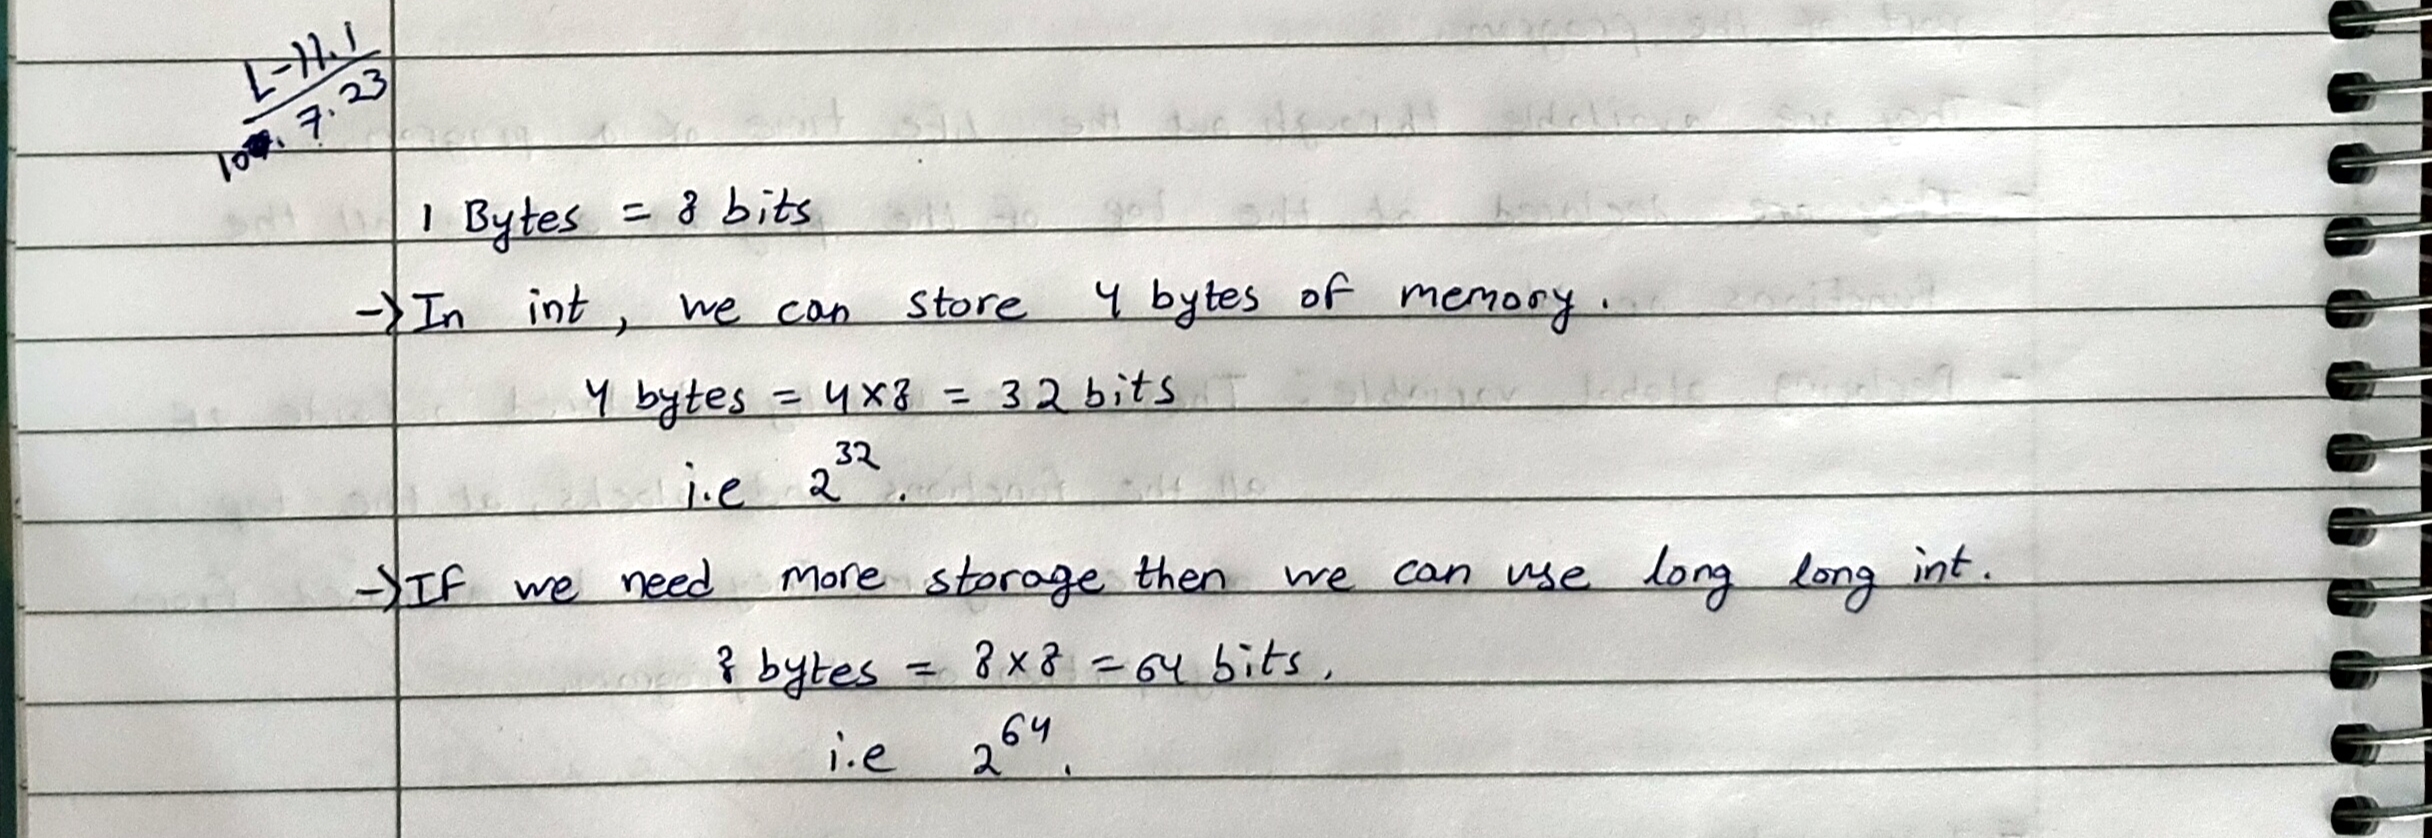 L-11.1
10.7.23
1 Bytes = 8 bits
→ In int, we can store 4 bytes of memory.
4 bytes = 4x8 = 32 bits
i.e 2^32.
→ If we need more storage then we can use long long int.
8 bytes = 8x8 = 64 bits.
i.e 2^64.